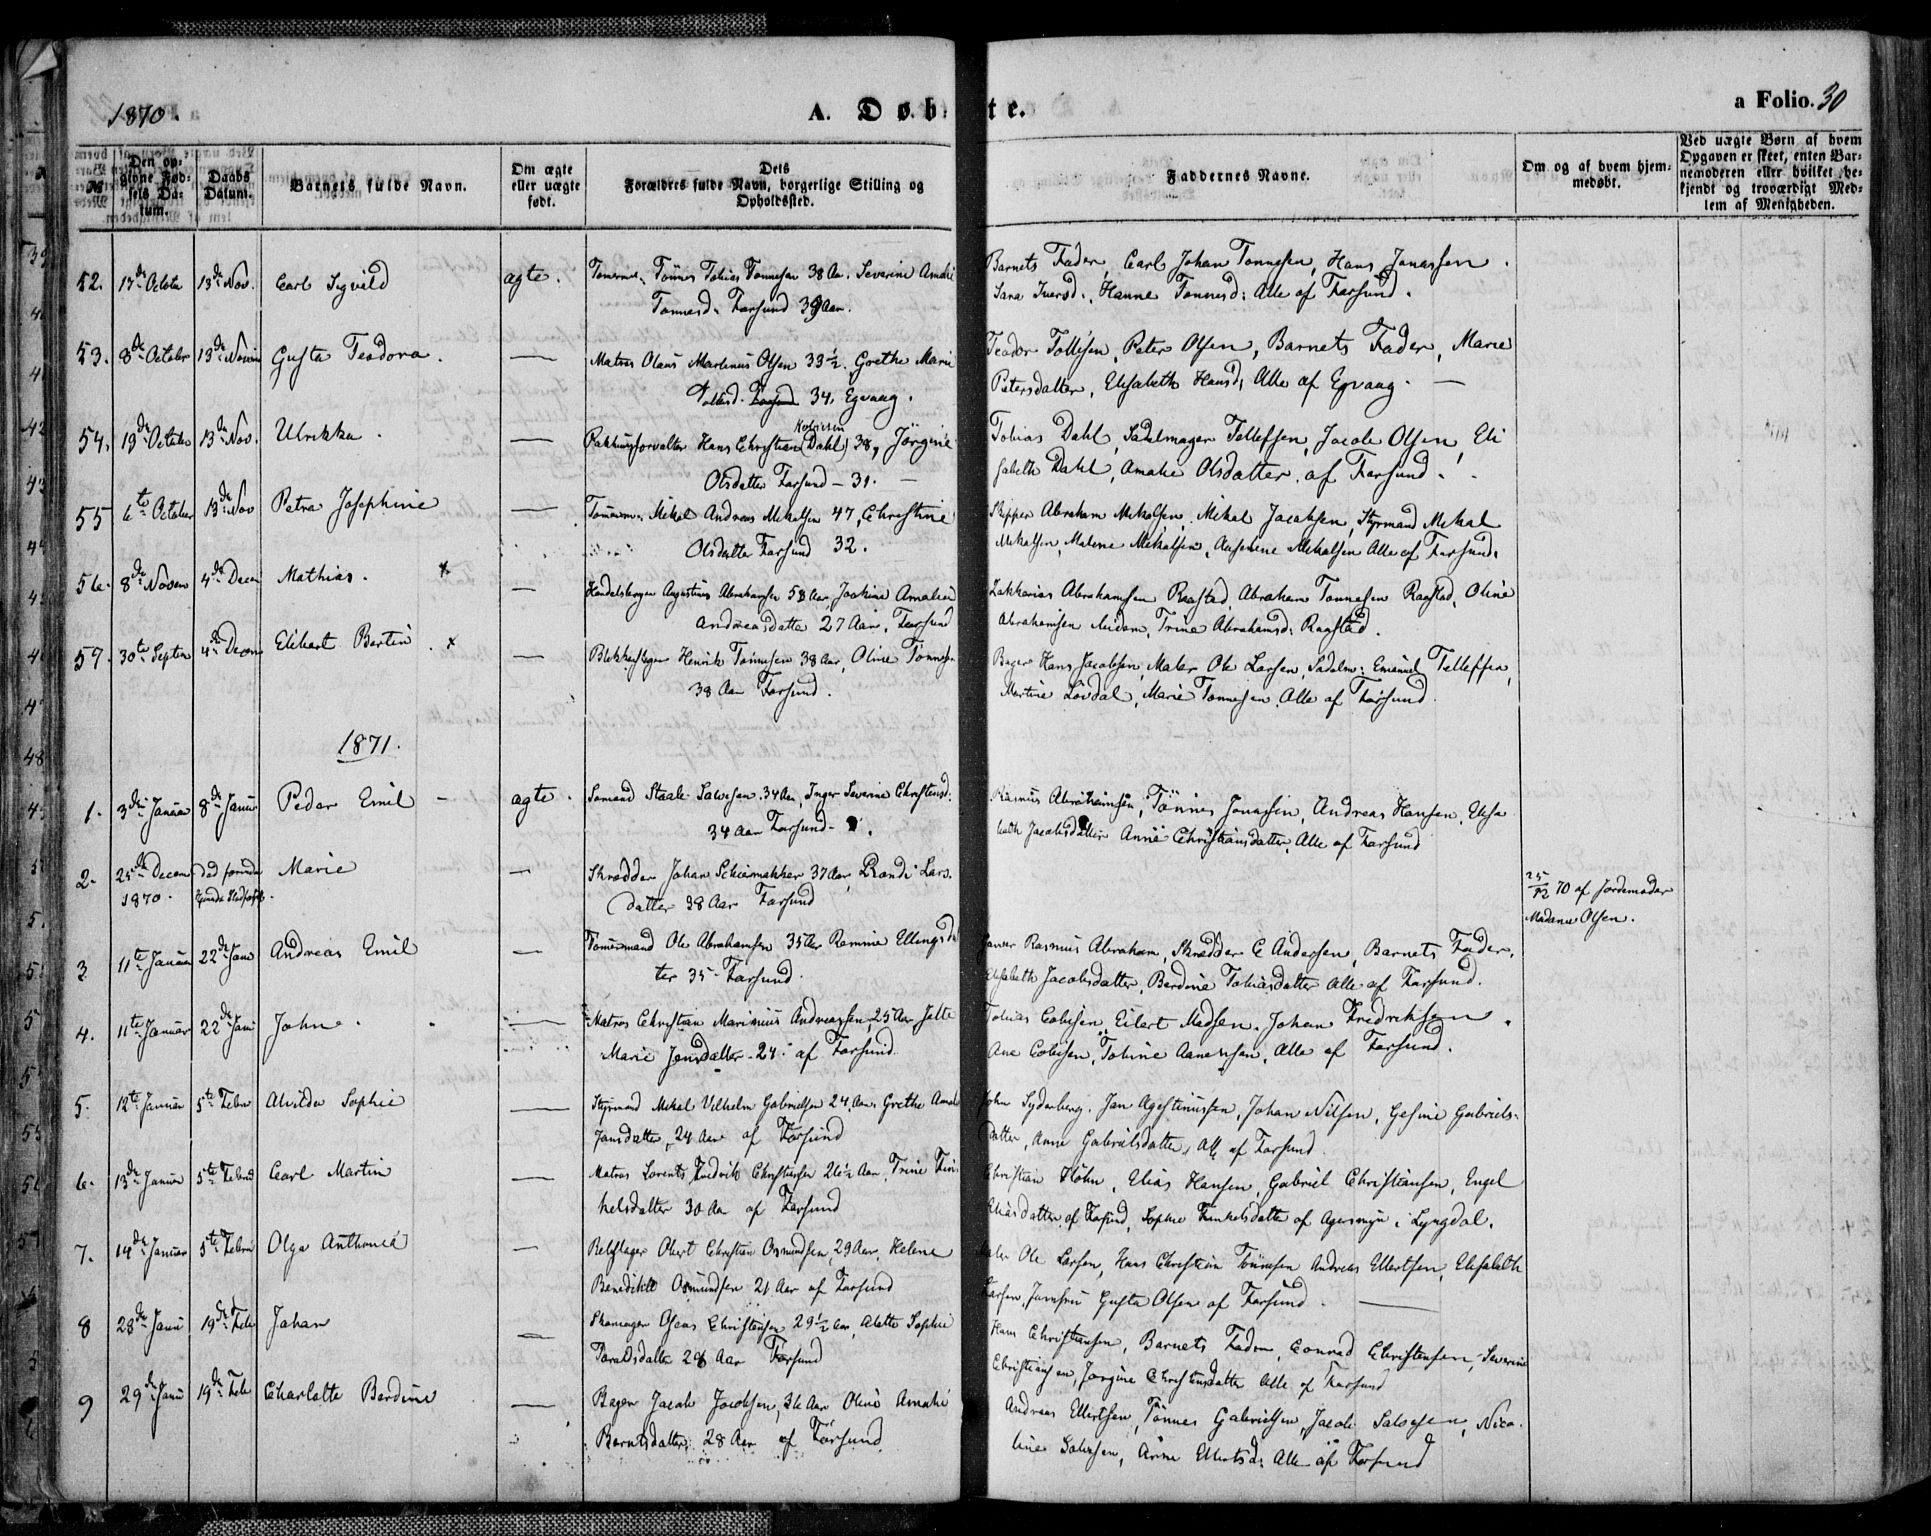 1870.
A. Døbte.
a Folio. 30
No
Den opgivne Fødsels Datum.
Daabs Datum.
Barnets fulde Navn.
Om ægte eller uægte født.
Dets Forældres fulde Navn, borgerlige Stilling og Opholdssted.
Faddernes Navne.
Om og af hvem hjemmedøbt.
Ved uægte Børn af hvem Opgaven er skeet, enten Barnemoderen eller hvilket bekjendt og troværdigt Medlem af Menigheden.
52. 17de October 13de Nov. Carl Sigvild ægte. Tønnes Tobias Tønnesen 38 Aar. Severine Amalie
Tønnesd. Farsund 39 Aar.
Barnets Fader, Carl Johan Tønnesen, Hans Jonassen.
Sara Iversd., Hanne Tønnesd: Alle af Farsund.
53. 8de October 13de Novem Gusta Teodora. — Matros Olaus Martinus Olsen 33½. Grethe Marie
Tollisd. Farsund 34, Egvaag.
Teodor Tollisen, Peter Olsen, Barnets Fader, Marie
Petersdatter, Elisabeth Hansd, Alle af Egvaag. —
54. 19de October 13de Nov. Ulrikka. — Pakhusforvalter Hans Christian (Dahl) 38, Jörgine
Olsdatter Farsund — 31.
Tobias Dahl, Sadelmager Tellefsen, Jacob Olsen, Eli
sabeth Dahl, Amalie Olsdatter, af Farsund.
55 6te October 13de Nov Petra Josephine — Tømmerm. Mikal Andreas Mikalsen 47, Christine
Olsdatter Farsund 32.
Skipper Abraham Mikalsen, Mikal Jacobsen, Styrmand Mikal
Mikalsen, Malene Mikalsen, Mikalsen Alle af Farsund.
56. 8de Novem 4de Decem Mathias. x — Handelsborger Augustinus Abrahamsen 58 Aar, Jockine Amalia
Andreasdatter 27 Aar. Farsund
Zakkarias Abrahamsen Ragstad, Abraham Tønnesen Ragstad, Oline
Abrahamsen, Trine Abrahamsd: Ragstad.
57. 30te Septem 4de Decem Elibart Bertin x — Blikkenslager Henrik Tønnesen 38 Aar, Oline Tønnesen
38 Aar Farsund.
Bager Hans Jacobsen, Maler Ole Larsen, Sadelm: Emanuel Tellefsen,
Martine Lövdal, Marie Tønnesen, Alle af Farsund
1871.
1. 3die Januar 8de Januar Peder Emil — ægte. Sømand Staale Salvesen 34 Aar, Inger Severine Christensd.
34 Aar Farsund
Rasmus Abrahamsen, Tönnes Jonassen, Andreas Hansen, Elisa
beth Jacobsdatter Anne Christiansdatter, Alle af Farsund
2. 25de Decem 1870. Marie — Skrædder Johan Schiermakker 37 Aar, Randi Lars
datter 38 Aar Farsund
25/12 70 af Jordemoder
Madame Olsen.
3 11te Januar 22de Janu Andreas Emil — Tømmermand Ole Abrahamsen 35 Aar Ramine Ellingsdat
ter 35 Farsund.
Rasmus Abraham, Skrædder C Andersen, Barnets Fader,
Elisabeth Jacobsdatter, Berdine Tobiasdatter Alle af Farsund.
4. 11te Januar 22de Janu Johne. — Matros Christian Marinius Andreassen, 25 Aar Jette
Marie Jensdatter 24. af Farsund
Tobias Cobisen, Eilert Madsen, Johan Fredriksen.
Ane Cobisen, Tobine Aanensen, Alle af Farsund.
5. 12te Januar 5te Febru Alvilda Sophie — Styrmand Mikal Vilhelm Gabrielsen 24, Aar, Grethe Amal
Jansdatter, 24 Aar af Farsund
John Syderberg, Jan Agustinussen, Johan Nilsen, Gesine Gabriels
datter, Anne Gabrielsdatter, Alle af Farsund.
6. 13de Januar 5te Februar Carl Martin — Matros Lorents Fredrik Christiansen 26½ Aar, Trine Fin
kelsdatter 30 Aar af Farsund
Christian Höhn, Elias Hansen, Gabriel Christiansen, Engel
Eliasdatter af Farsund, Sophie Finkelsdatter af Agersmyr i Lyngdal.
7. 14de Januar 5te Februar Olga Anthonie — Christian Osmundsen, 29 Aar, Helene
Benedikte Osmundsen 21 Aar af Farsund
Maler Ole Larsen, Hans Christian Tönnesen Andreas Ellertsen, Elisabeth
Larsen, Jomfru Gusta Olsen af Farsund. —
8 28de Janu 19de Feb Johan — Skomager Christiansen 29½ Aar, Alette Sophie
Taraldsdatter 28 Aar Farsund
Hans Christiansen, Barnets Fader, Conrad Christensen, Severine
Christiansen, Jørgine Christensdatter Alle af Farsund
9 29de Janu 19de Feb Charlotte Berdine — Bager Jacob Jacobsen, 36 Aar Oline Amalie
Berntsdatter, 28 Aar af Farsund
Andreas Ellertsen, Tönnes Gabrielsen, Jacob Salvesen, Nico
line Salvesen, Anne Ellertsd: Alle af Farsund